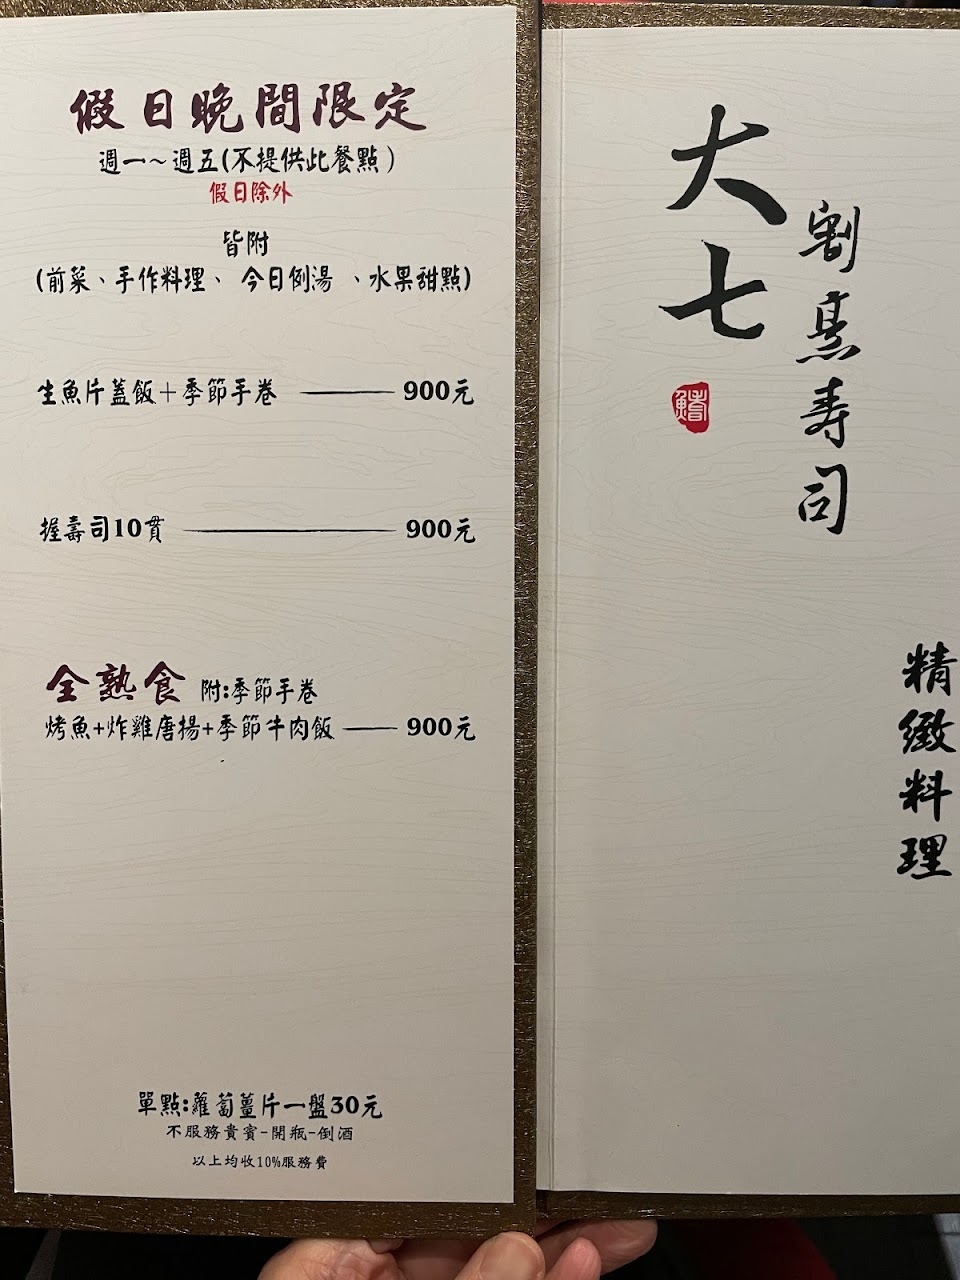 假日晚間限定
週一～週五(不提供此餐點)
假日除外
皆附
(前菜、手作料理、 今日例湯 、水果甜點)
生魚片蓋飯+季節手卷 900元
握壽司10貫 900元
全熟食 附:季節手卷
烤魚+炸雞唐揚+季節牛肉飯 900元
單點:蘿蔔薑片一盤30元
不服務貴賓-開瓶-倒酒
以上均收10%服務費
大七
割烹壽司
精緻料理